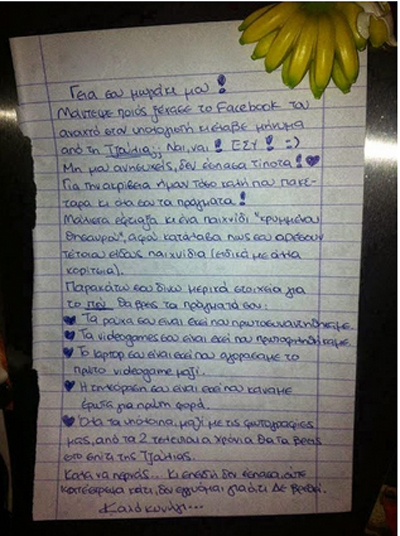 Γεια σου μωράκι μου!
Μάντεψε ποιός ξέχασε το Facebook του
ανοιχτό στον υπολογιστή κι έλαβε μήνυμα
από τη Τζούλια;; Ναι, ναι! ΕΣΥ! =)
Μη μου ανησυχείς, δεν έσπασα τίποτα!
Για την ακρίβεια ήμουν τόσο καλή που πακε-
ταρα κι όλα σου τα πράγματα!
Μάλιστα έφτιαξα κι ένα παιχνίδι "κρυμμένου
θησαυρού", αφού κατάλαβα πως σου αρέσουν
τέτοιου είδους παιχνίδια (ειδικά με άλλα
κορίτσια).
Παρακάτω σου δίνω μερικά στοιχεία για
το που θα βρεις τα πράγματά σου:
Τα ρούχα σου είναι εκεί που πρωτοσυναντηθήκαμε.
Τα videogames σου είναι εκεί που πρωτοφιληθήκαμε.
Το laptop σου είναι εκεί που αγοράσαμε το
πρώτο videogame μαζί.
Η τηλεόραση σου είναι εκεί που κάναμε
έρωτα για πρώτη φορά.
Όλα τα υπόλοιπα, μαζί με τις φωτογραφίες
μας, από τα 2 τελευταία χρόνια θα τα βρεις
στο σπίτι της Τζούλιας.
Καλά να περνάς... Κι επειδή δεν έσπασα, ούτε
κατέστρεψα κάτι, δεν εγγυώμαι για ό,τι δε βρεθεί.
Καλό κυνήγι...